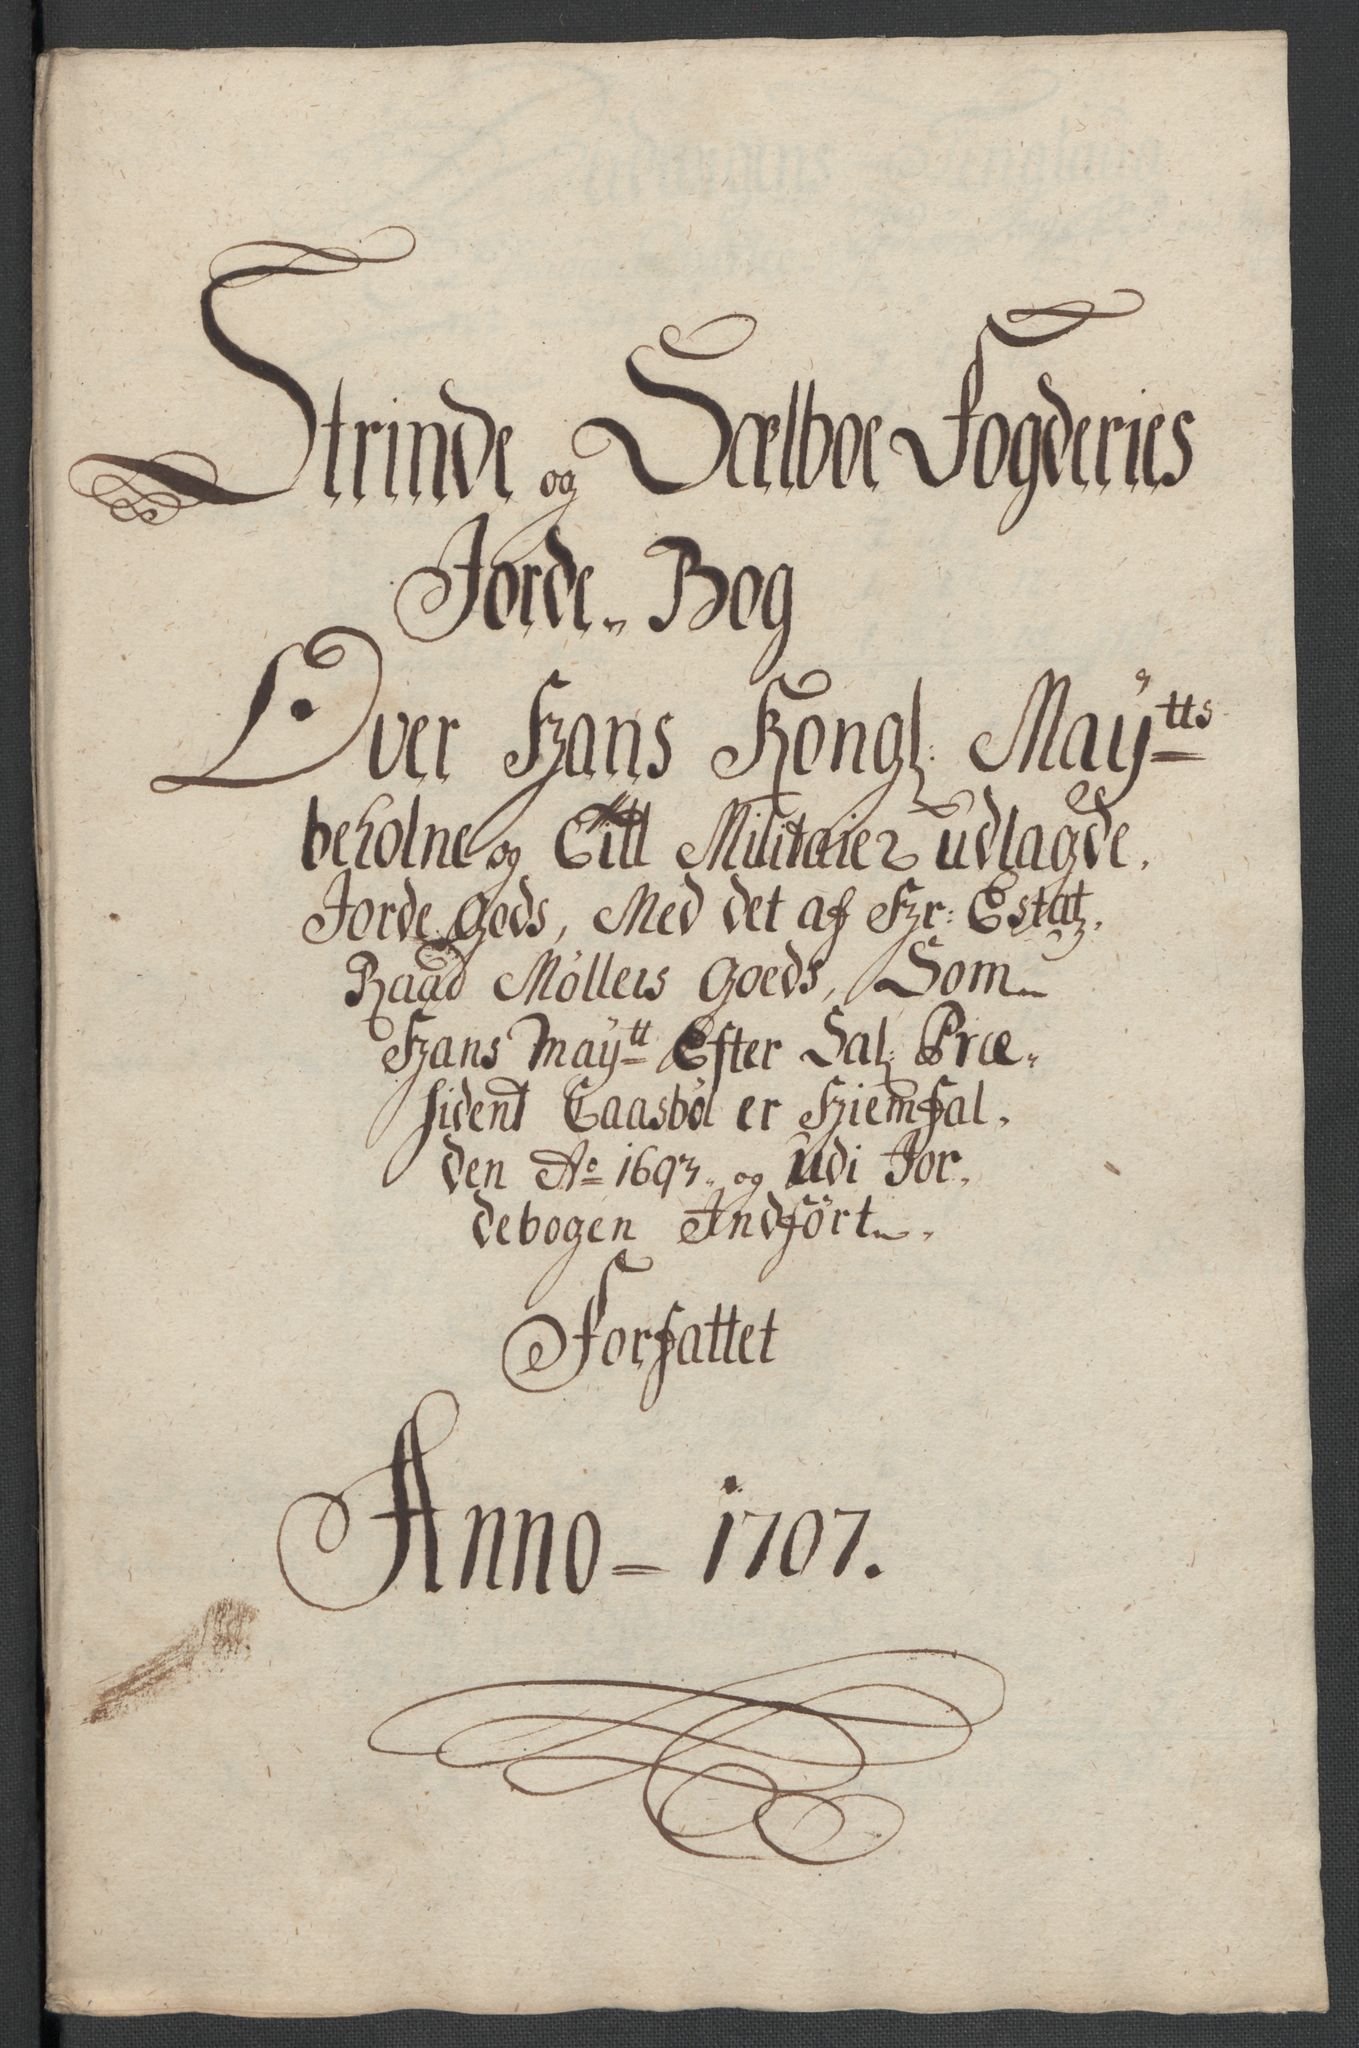 Strinde og Sælboe Fogderies
Jorde„ Bog
Over Hans Kongl: Maÿtts
beholne og Till Militaien udlagde.
Jorde gods, Med det af Hr: Estatz.
Raad Møllers goeds, Som
Hans Maÿtt Efter Sal: Præ„
sident Caasbøl er Hiemfal„
den Ao 1693„ og Udi Jor„
debogen Indført„
Forfattet
Anno = 1707.